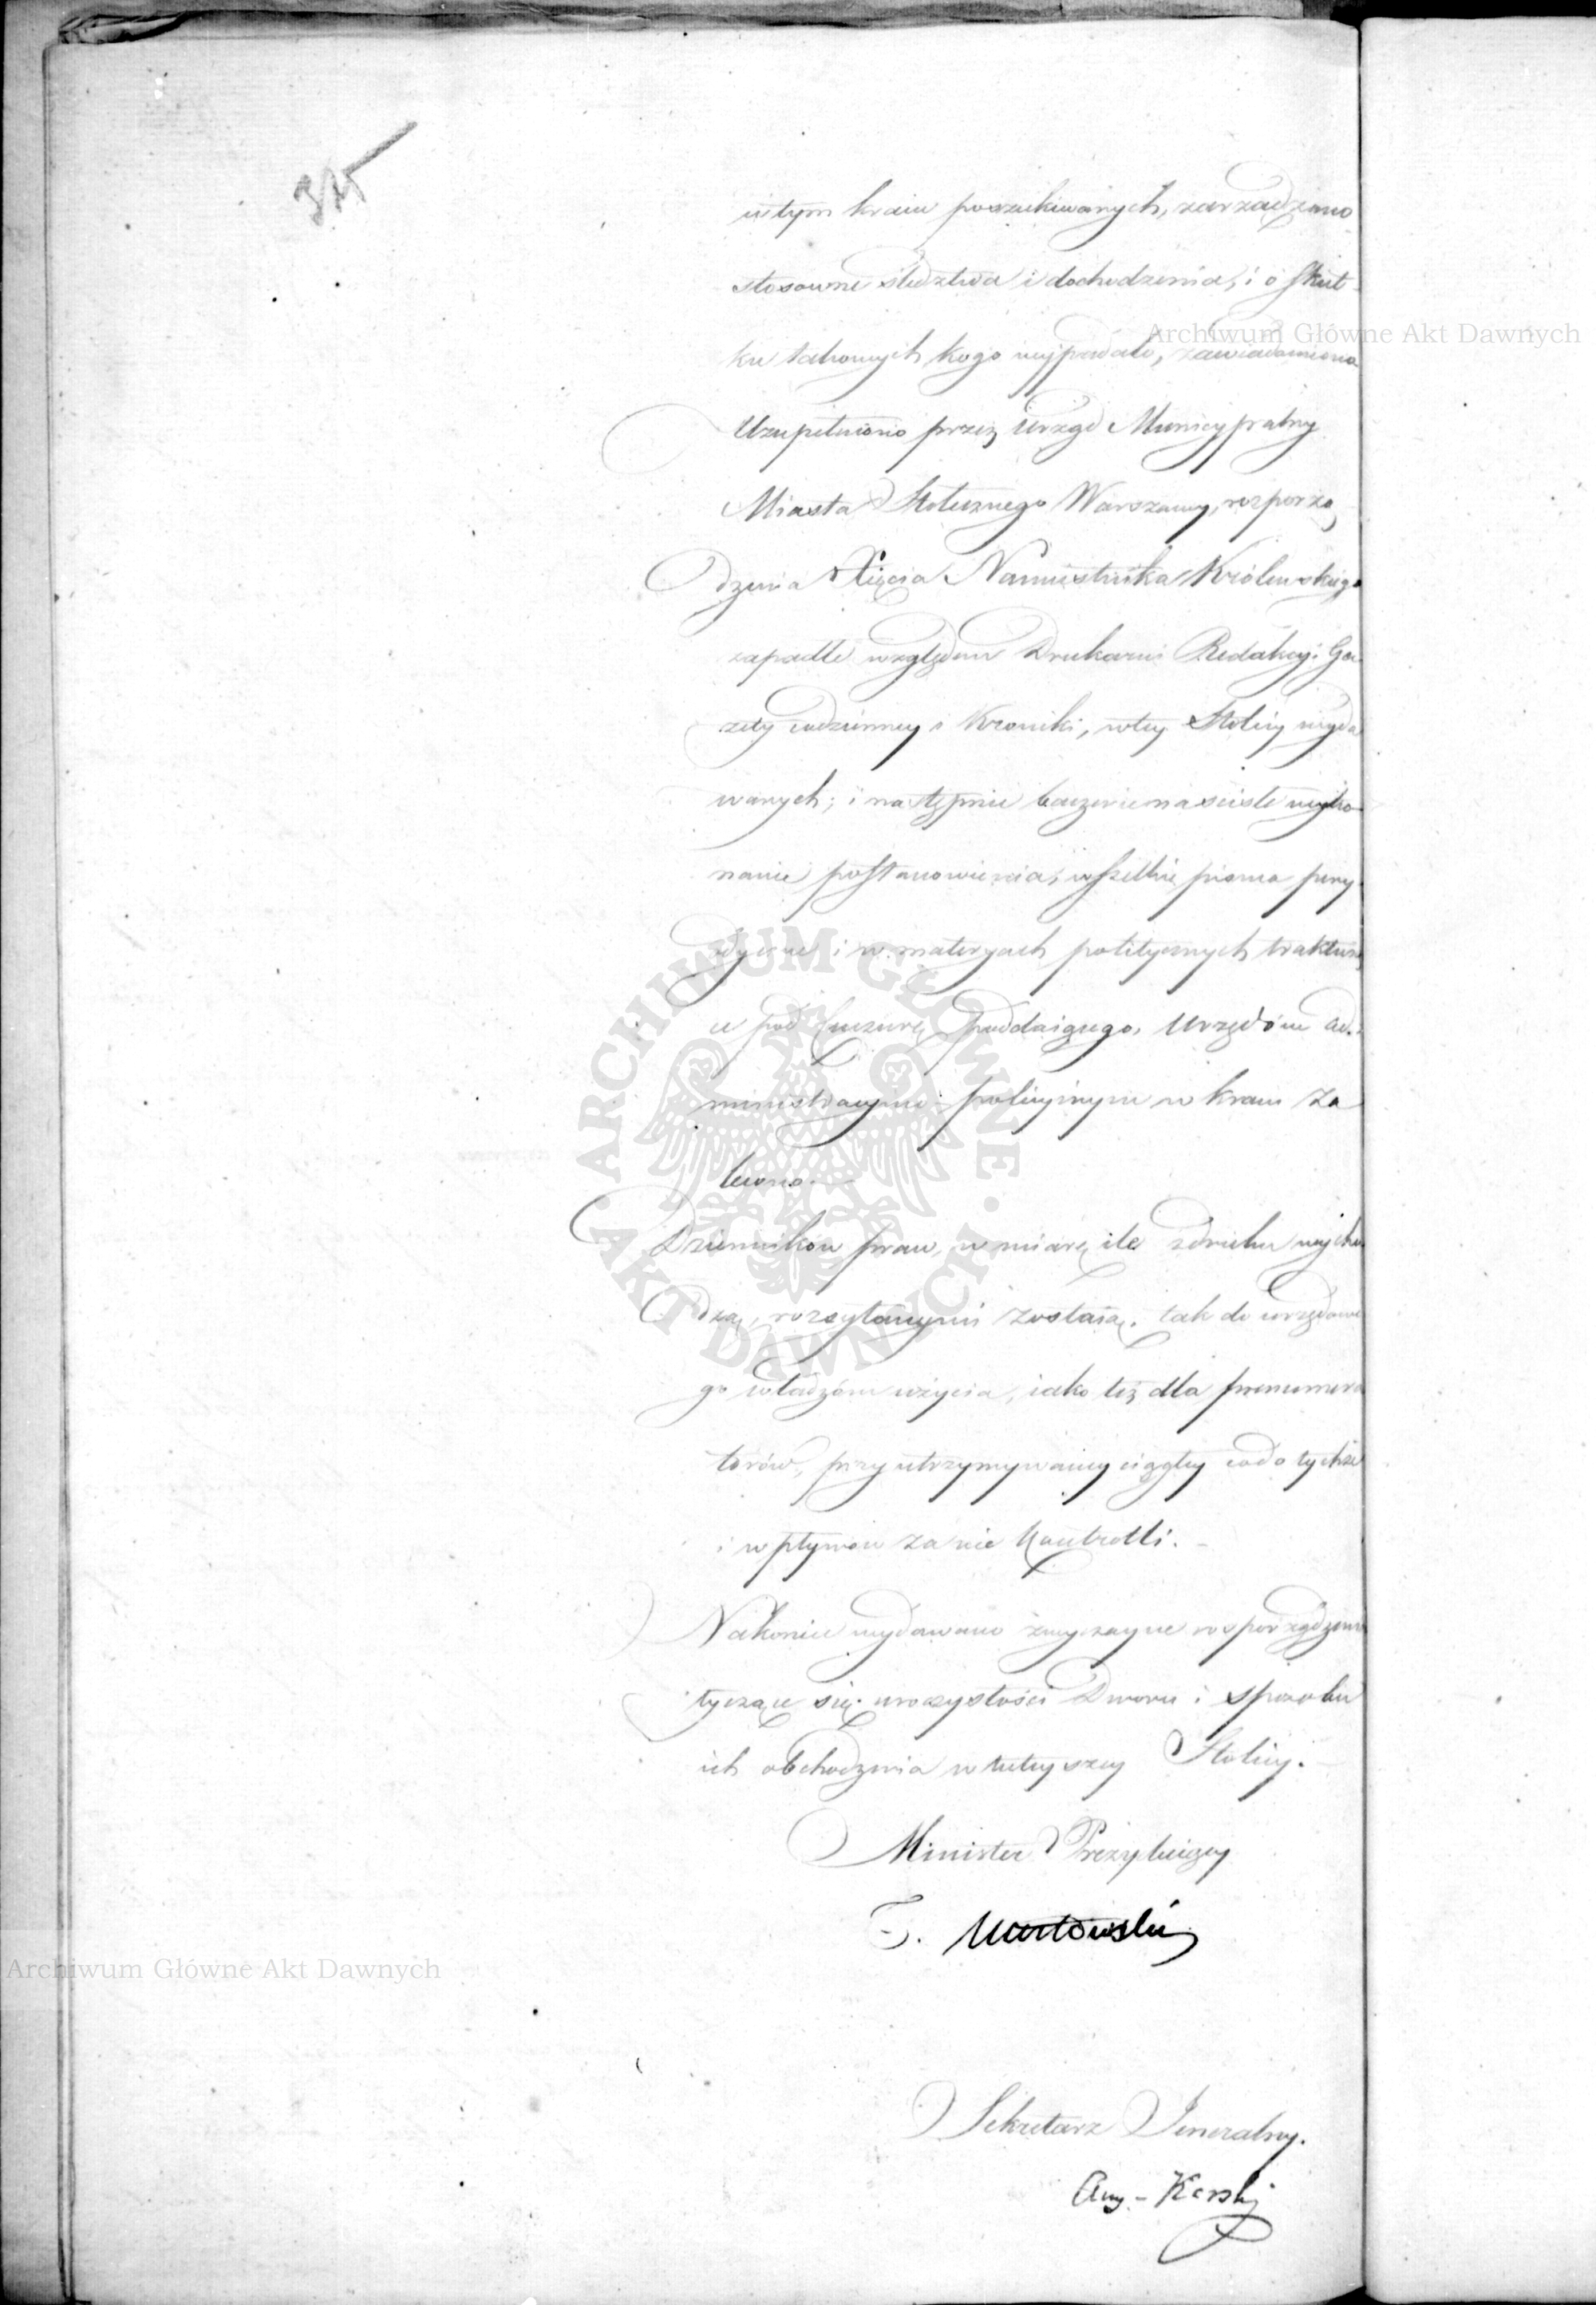 315
w tym kraiu poszukiwanych, zarządzono
stosowne śledztwa i dochodzenia, i o skut-
ku takowych kogo wypadało, zawiadomiono
Uzupełniono przez Urząd Municypalny
Miasta Stołecznego Warszawy, rozporzą
dzenia Xięcia Namiestnika Królewskiego
zapadłe względem Drukarni Redakcyi Ga
zety codzienney i Kroniki, w tey Stolicy wyda
wanych; i następnie baczenie na ścisłe wyko-
nanie postanowienia, wszelkie pisma pery-
odyczne i w materyach politycznych traktuią
ce pod Cenzurę poddaiącego, Urzędom ad-
ministracyino-policyinym w kraiu za
lecono.
Dzienników praw, w miarę ile z druku wycho
dzą, rozsyłanymi zostaią. tak do urzędowe
go władzom użycia, iako też dla prenumera
torów, przy utrzymywaney ciągley co do tychże
i wpływów za nie Kontrolli.
Nakoniec wydawano zwyczayne rosporządzenia
tyczące się uroczystości Dworu i sposobu
ich obchodzenia w tuteyszey Stolicy.
Minister Prezyduiący
T. Mostowski
Sekretarz Jeneralny.
Aug - Karski
Archiwum Główne Akt Dawnych
Archiwum Główne Akt Dawnych
ARCHIWUM GŁÓWNE · AKT DAWNYCH ·